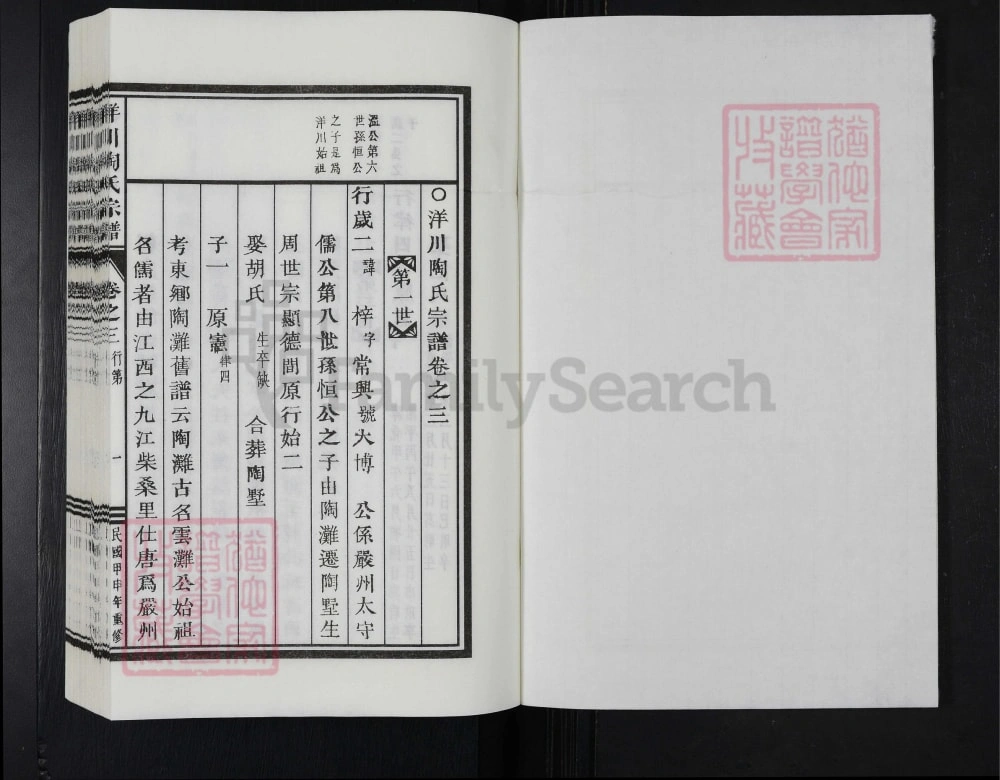 ○洋川陶氏宗譜卷之三
第一世
溫公第六
世孫恒公
之子是爲
洋川始祖
行歲二 諱梓 字常興 號大博 公係嚴州太守
儒公第八世孫恒公之子由陶灘遷陶墅生
周世宗顯德間原行始二
娶胡氏 生卒缺 合葬陶墅
子一 原憲 律四
考東鄉陶灘舊譜云陶灘古名雲灘公始祖
名儒者由江西之九江柴桑里仕唐爲嚴州
洋川陶氏宗譜 卷之三 行第 一 民國甲申年重修
猶他家
譜學會
收藏
猶他家
譜學會
收藏
FamilySearch